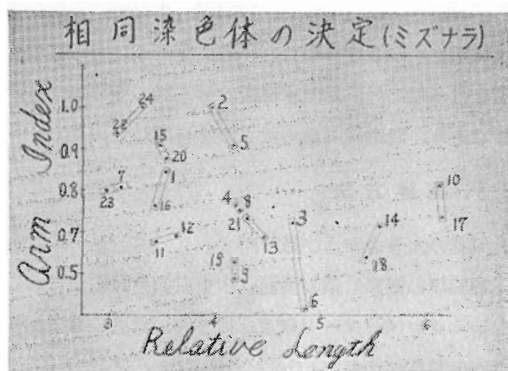 相同染色体の決定(ミズナラ)
Arm Index
1.0
0.9
0.8
0.7
0.5
24
22
2
15
5
20
1
7
23
16
10
4
8
21
3
12
11
13
14
17
18
19
9
6
3
4
5
6
Relative Length